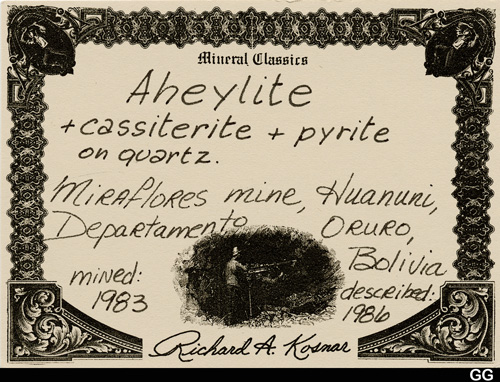 Mineral Classics
Aheylite
+ cassiterite + pyrite
on quartz.
Miraflores mine, Huanuni,
Departamento Oruro,
Bolivia
mined:
1983
described:
1986
Richard A. Kosnar
GG